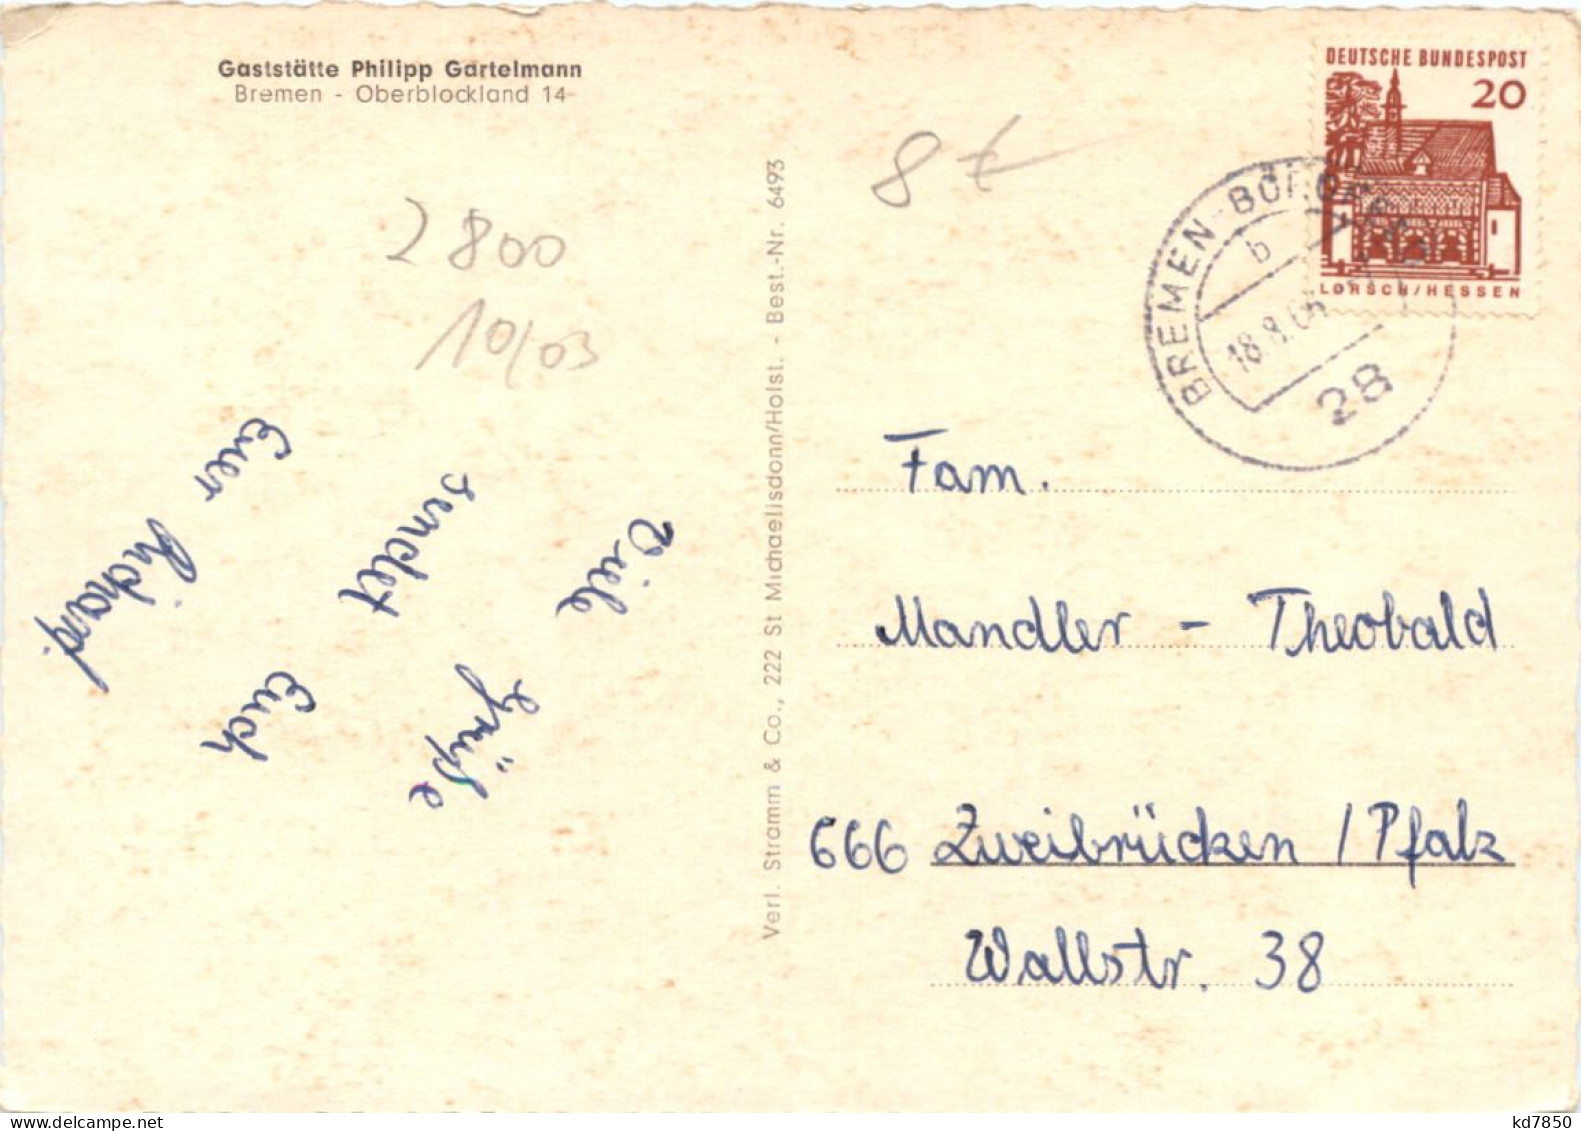 Gaststätte Philipp Gartelmann
Bremen - Oberblockland 14
2800
10/03
Viele Grüße
sendet Euch
Euer Richard.
Verl. Stramm & Co., 222 St Michaelisdonn/Holst. - Best.-Nr. 6493
8 €
DEUTSCHE BUNDESPOST
20
LORSCH/HESSEN
BREMEN-
b
18.8.65
28
Fam.
Mandler - Theobald
666 Zweibrücken / Pfalz
Wallstr. 38
www.delcampe.net
kd7850